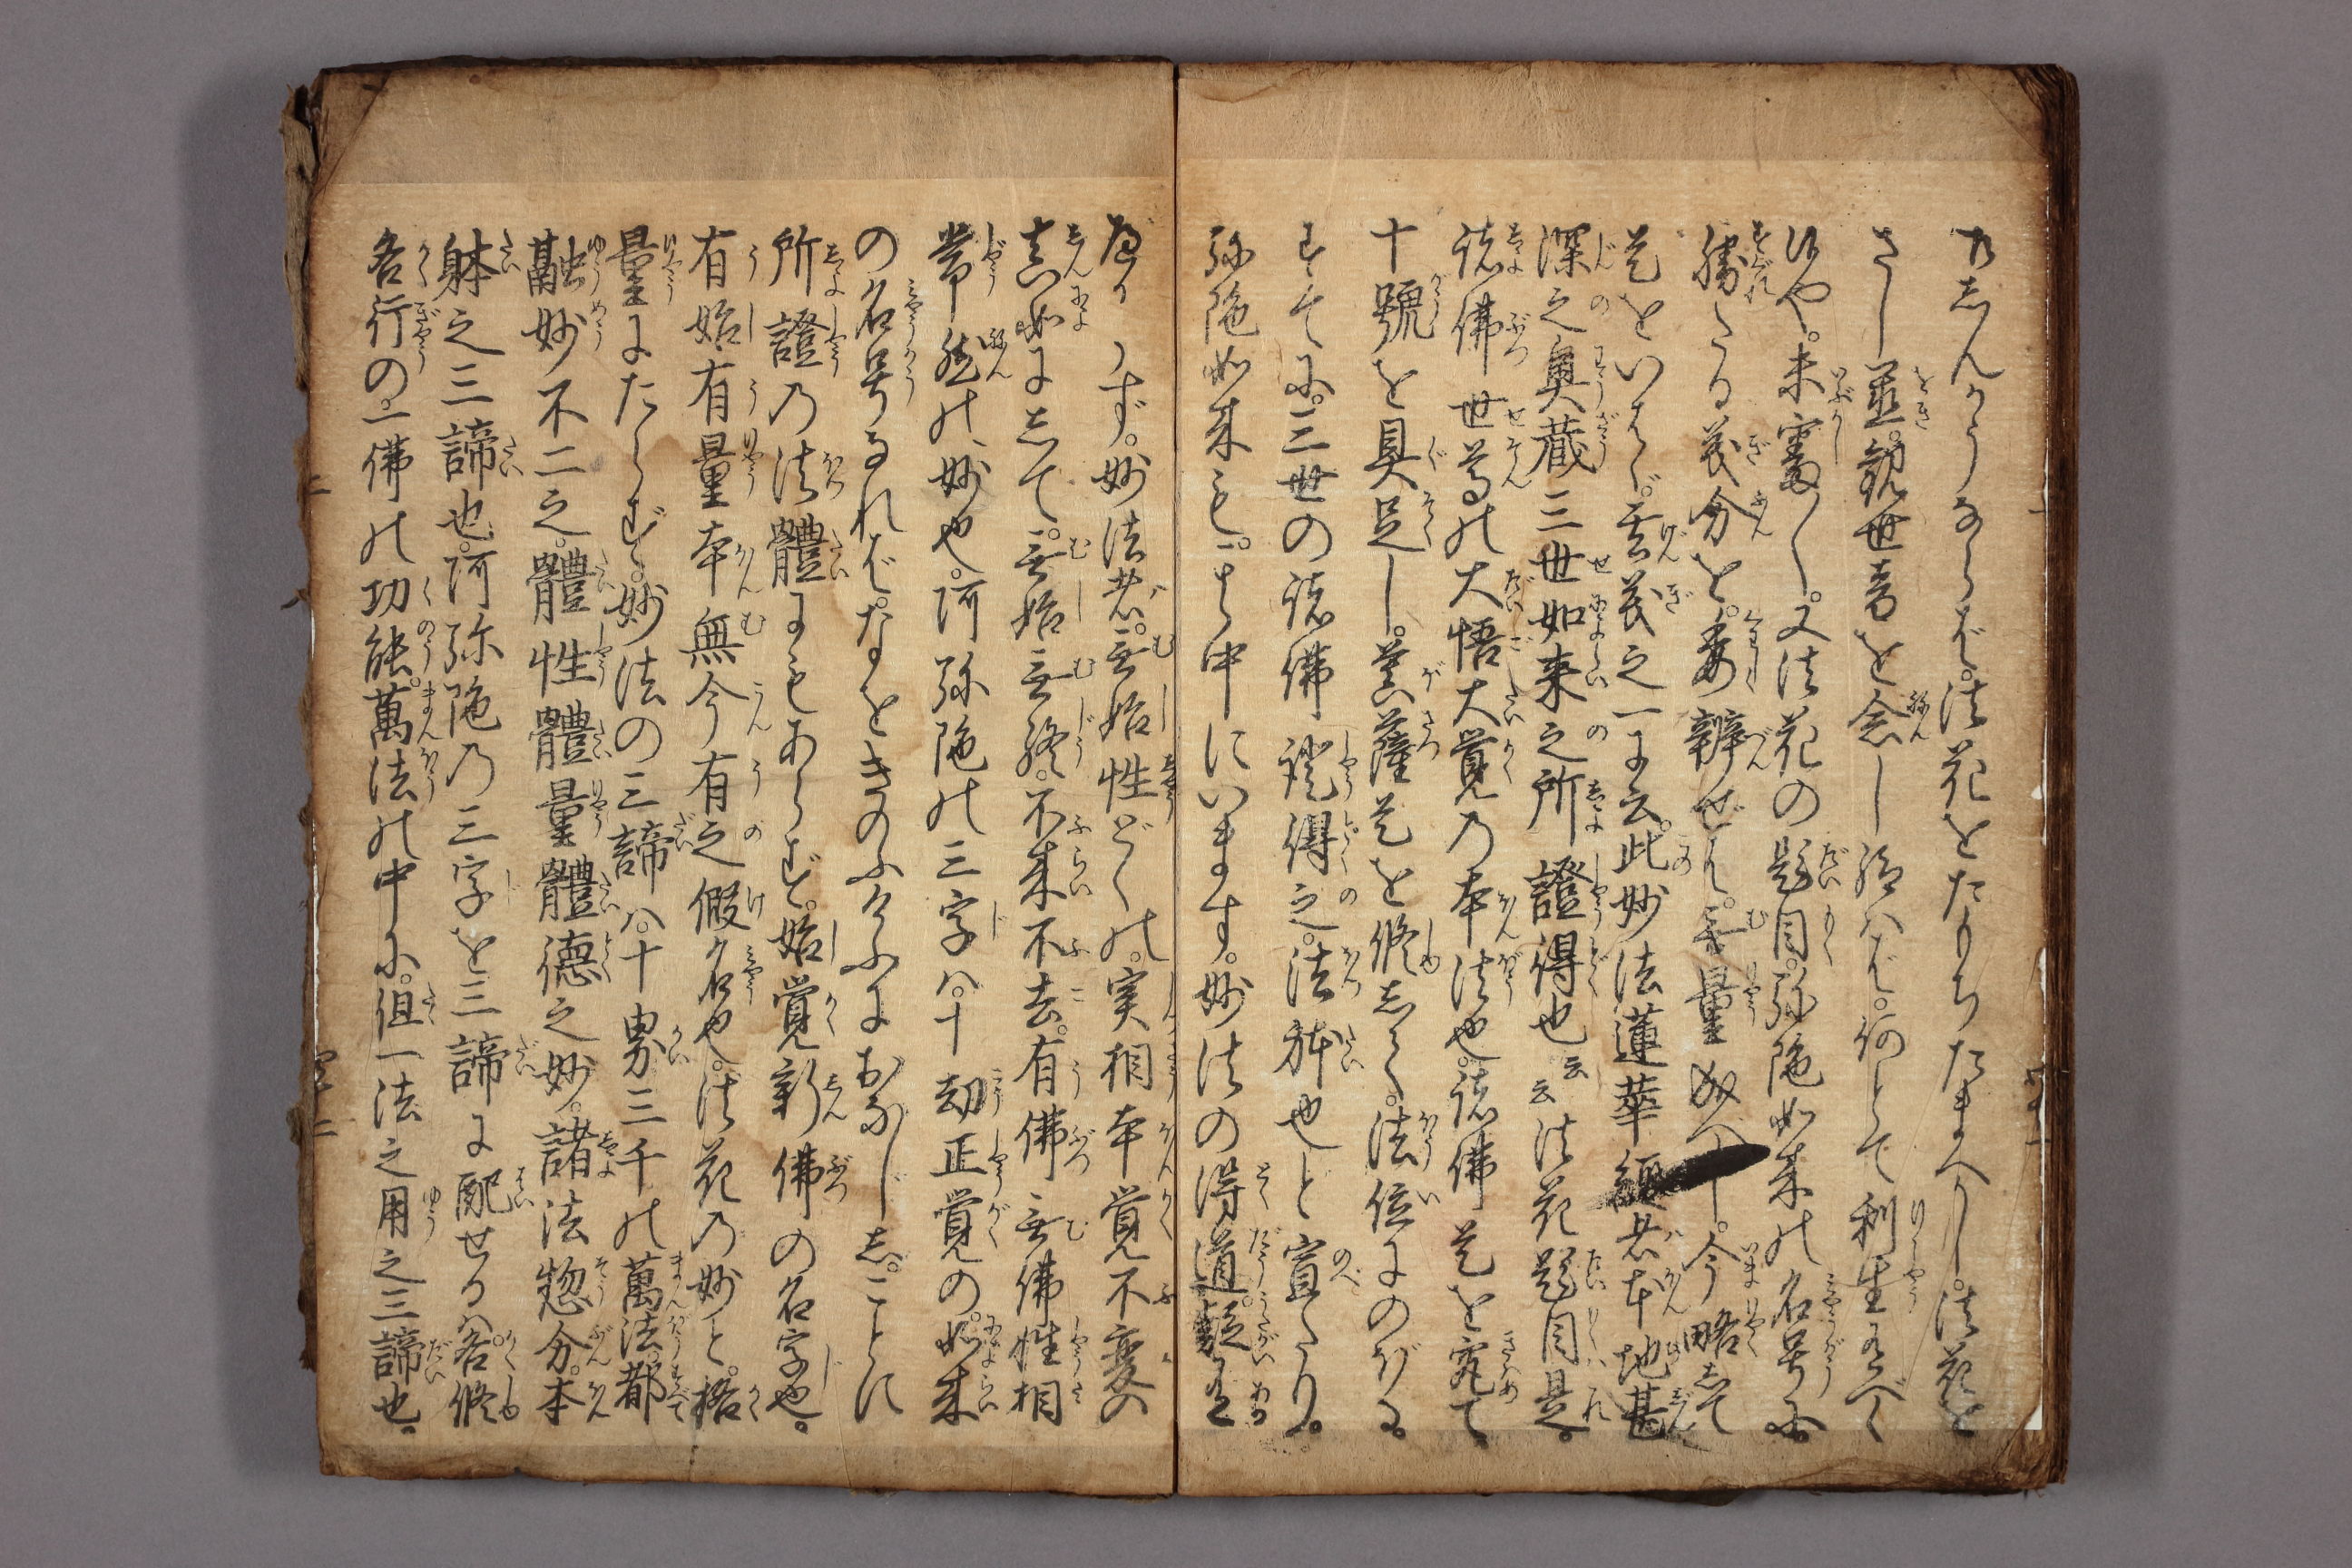 乃志んかうならば。法花をたもちたまへかし。法花を
さし置。観世音を念し給はゞ。何とて利生有べく
候や。未審く。又法花の題目。弥陀如来の名号に。
勝たる義分を。委辨ぜば。無量成べし。今略して
是をいはゞ。玄義之一に云。此妙法蓮華經者本地甚
深之奥蔵三世如来之所證得也云云法花題目是。
諸佛世尊の大悟大覚乃本法也。諸佛是を究て、
十號を具足し。菩薩是を修して。法位にのぼる。
すでに。三世の諸佛證得之。法躰也と宣たり。
弥陀如来も。其中にいます。妙法の得道疑有
べからず。妙法者。無始性どくの。実相本覚不変の
真如にして。無始無終。不来不去。有佛無佛性相
常然の、妙也。阿弥陀の三字は。十劫正覚の。如来
の名号なれば。なをきのふけふにおなじし。ことに
所證乃法體にもあらず。始覚新佛の名字也。
有始有量本無今有之假名也。法花乃妙と。格
量にたらず。妙法の三諦は。十界三千の萬法。都
融妙不二之。體性體量體徳之妙。諸法惣分。本
躰之三諦也。阿弥陀乃三字を三諦に配せるは。各修
各行の。一佛の功能。萬法の中に。但一法之用之三諦也。